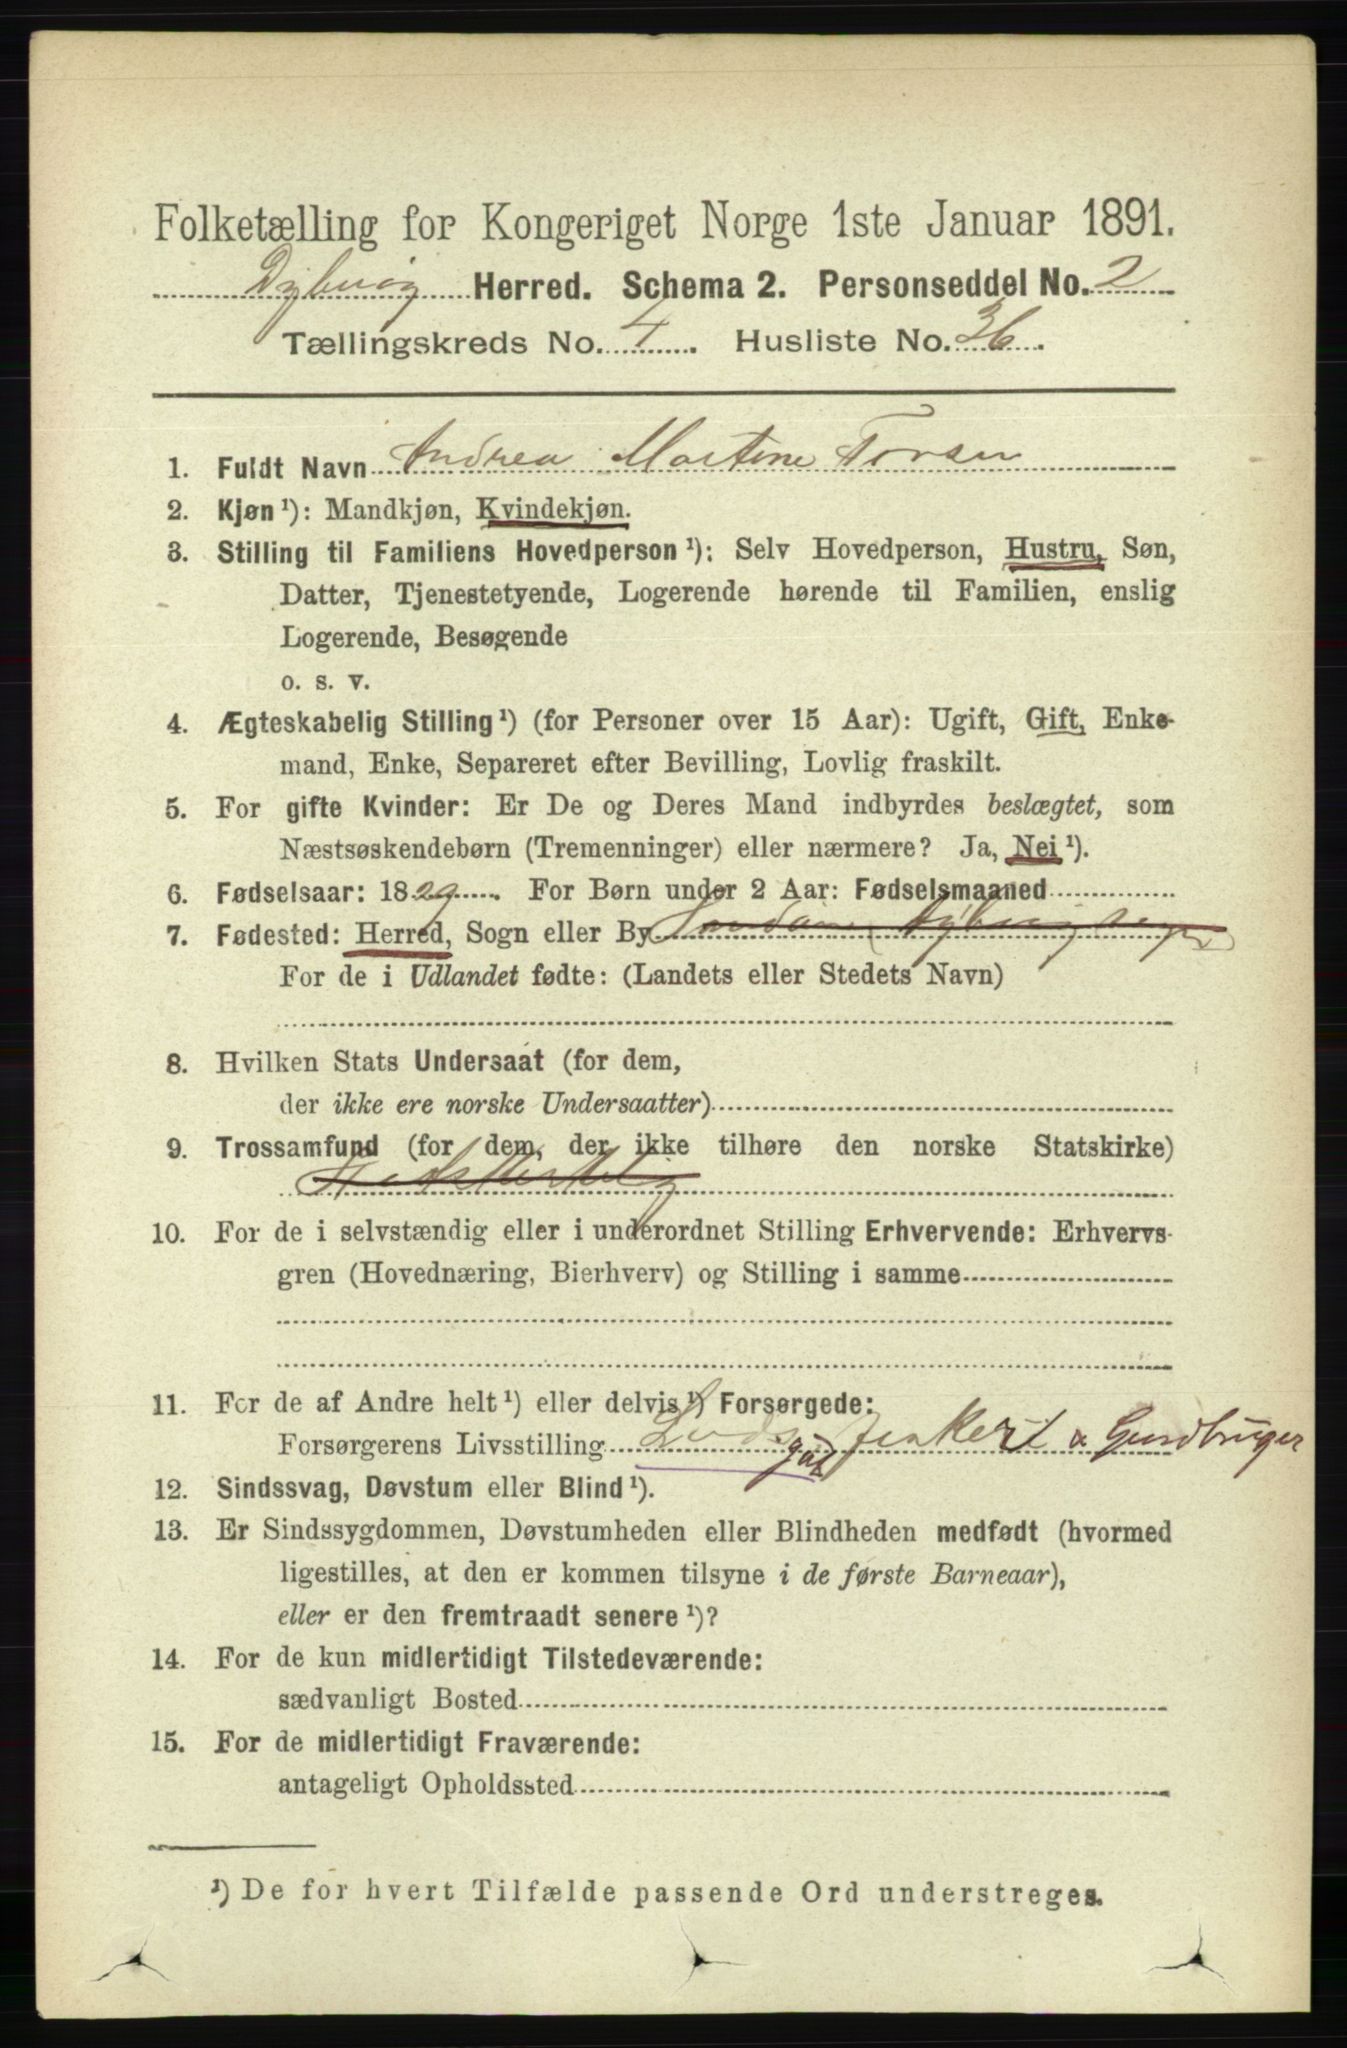 Folketælling for Kongeriget Norge 1ste Januar 1891.
Dybvåg Herred. Schema 2. Personseddel No. 2
Tællingskreds No. 4. Husliste No. 36.
1. Fuldt Navn Andrea Martine
2. Kjøn ¹): Mandkjøn, Kvindekjøn.
3. Stilling til Familiens Hovedperson ¹): Selv Hovedperson, Hustru, Søn,
Datter, Tjenestetyende, Logerende hørende til Familien, enslig
Logerende, Besøgende
o. s. v.
4. Ægteskabelig Stilling ¹) (for Personer over 15 Aar): Ugift, Gift, Enke-
mand, Enke, Separeret efter Bevilling, Lovlig fraskilt.
5. For gifte Kvinder: Er De og Deres Mand indbyrdes beslægtet, som
Næstsøskendebørn (Tremenninger) eller nærmere? Ja, Nei ¹).
6. Fødselsaar: 1829. For Børn under 2 Aar: Fødselsmaaned
7. Fødested: Herred, Sogn eller By
For de i Udlandet fødte: (Landets eller Stedets Navn)
8. Hvilken Stats Undersaat (for dem,
der ikke ere norske Undersaatter)
9. Trossamfund (for dem, der ikke tilhøre den norske Statskirke)
10. For de i selvstændig eller i underordnet Stilling Erhvervende: Erhvervs-
gren (Hovednæring, Bierhverv) og Stilling i samme
11. For de af Andre helt ¹) eller delvis ¹) Forsørgede:
Forsørgerens Livsstilling Lods & Gaardbruger
12. Sindssvag, Døvstum eller Blind ¹).
13. Er Sindssygdommen, Døvstumheden eller Blindheden medfødt (hvormed
ligestilles, at den er kommen tilsyne i de første Barneaar),
eller er den fremtraadt senere ¹)?
14. For de kun midlertidigt Tilstedeværende:
sædvanligt Bosted
15. For de midlertidigt Fraværende:
antageligt Opholdssted
¹) De for hvert Tilfælde passende Ord understreges.